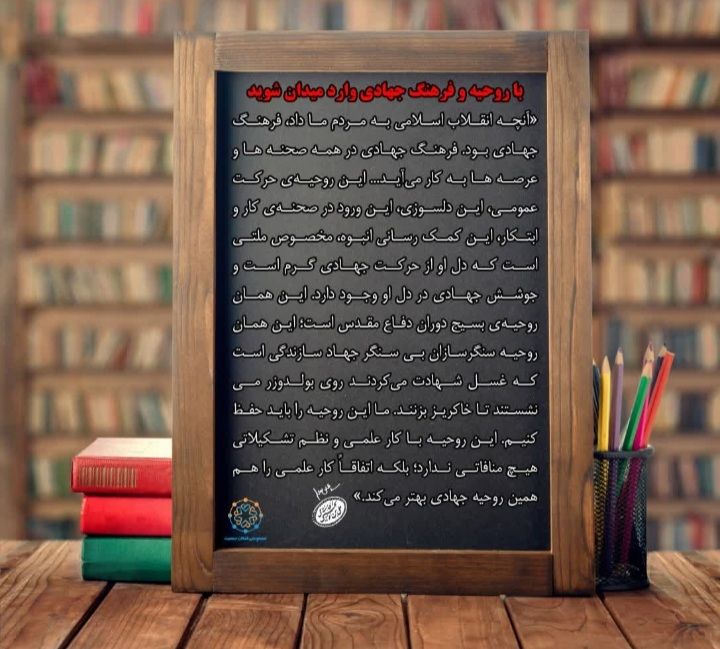 با روحیه و فرهنگ جهادی وارد میدان شوید
«آنچه انقلاب اسلامی به مردم ما داد، فرهنگ
جهادی بود. فرهنگ جهادی در همه صحنه ها و
عرصه ها به کار می‌آید... این روحیه‌ی حرکت
عمومی، این دلسوزی، این ورود در صحنه‌ی کار و
ابتکار، این کمک رسانی انبوه، مخصوص ملتی
است که دل او از حرکت جهادی گرم است و
جوشش جهادی در دل او وجود دارد. این همان
روحیه‌ی بسیج دوران دفاع مقدس است؛ این همان
روحیه سنگرسازان بی سنگر جهاد سازندگی است
که غسل شهادت می‌کردند روی بولدوزر می
نشستند تا خاکریز بزنند. ما این روحیه را باید حفظ
کنیم. این روحیه با کار علمی و نظم تشکیلاتی
هیچ منافاتی ندارد؛ بلکه اتفاقاً کار علمی را هم
همین روحیه جهادی بهتر می‌کند.»